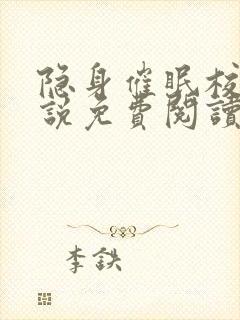 隐身催眠校
說免費閱讀
李鉄